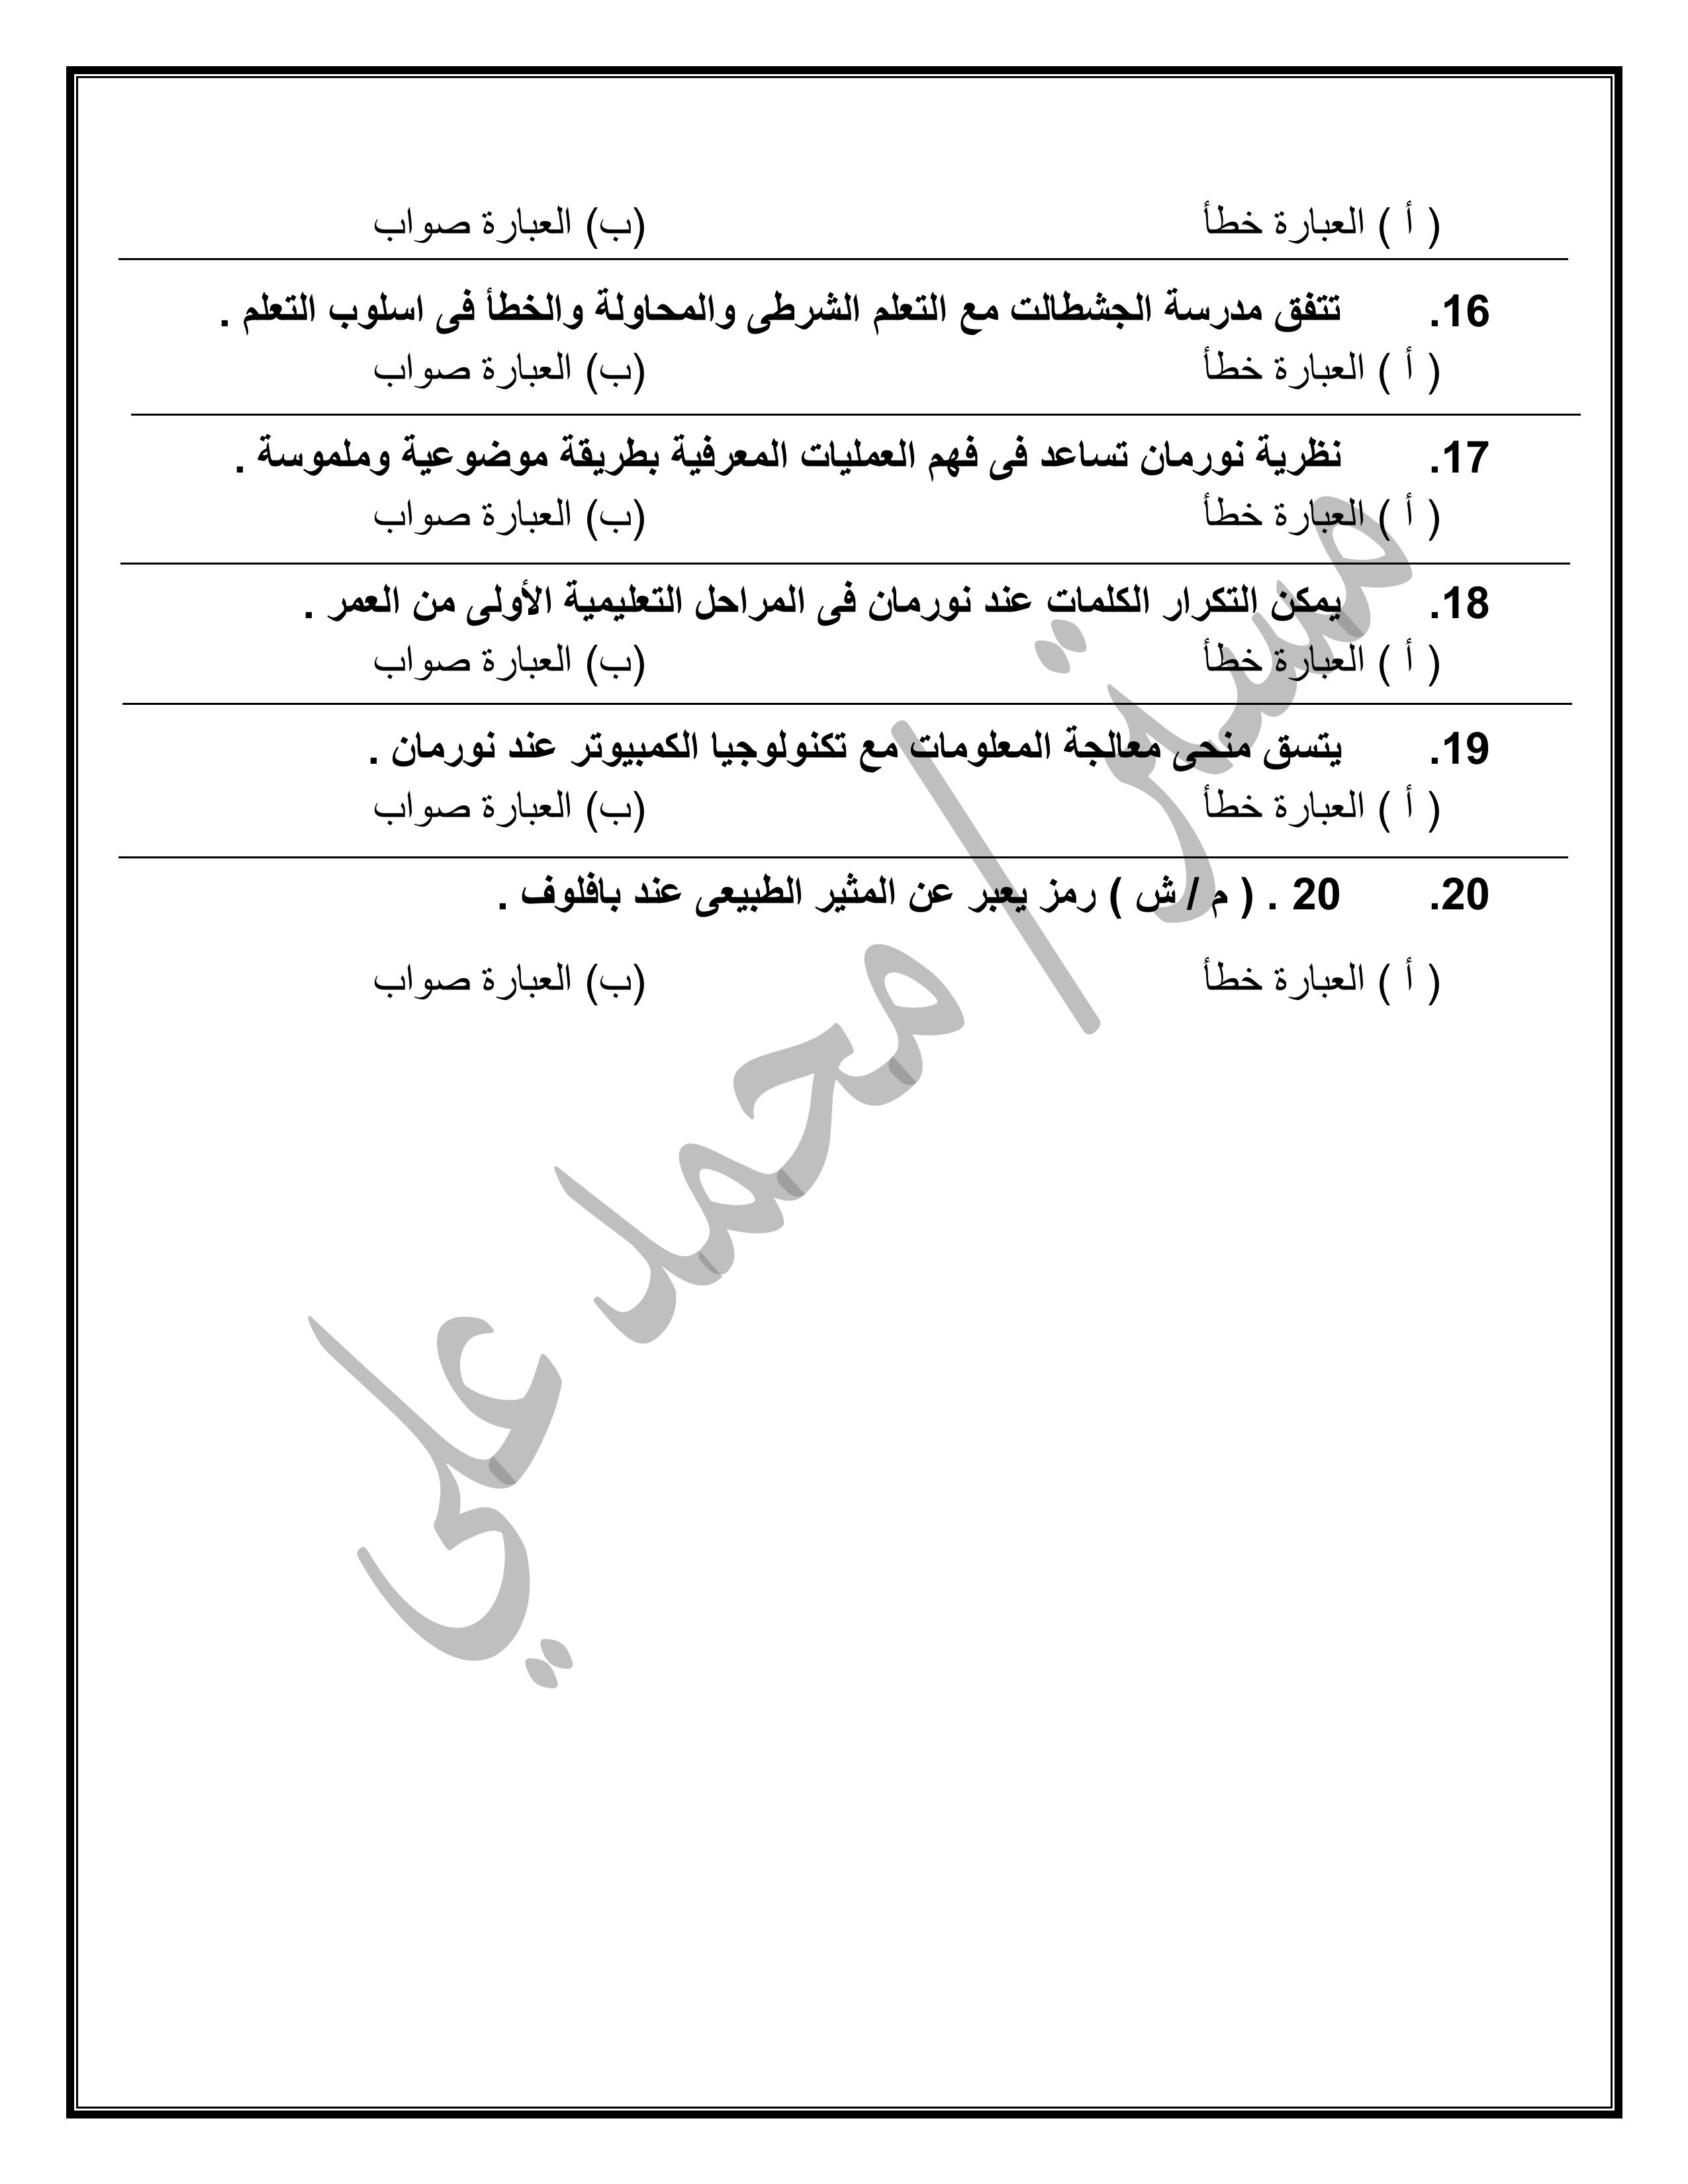 ( أ ) العبارة خطأ (ب) العبارة صواب
16. تتفق مدرسة الجشطالت مع التعلم الشرطى والمحاولة والخطأ فى اسلوب التعلم .
( أ ) العبارة خطأ (ب) العبارة صواب
17. نظرية نورمان تساعد فى فهم العمليات المعرفية بطريقة موضوعية وملموسة .
( أ ) العبارة خطأ (ب) العبارة صواب
18. يمكن التكرار الكلمات عند نورمان فى المراحل التعليمية الأولى من العمر .
( أ ) العبارة خطأ (ب) العبارة صواب
19. يتسق منحى معالجة المعلومات مع تكنولوجيا الكمبيوتر عند نورمان .
( أ ) العبارة خطأ (ب) العبارة صواب
20. 20 . ( م / ش ) رمز يعبر عن المثير الطبيعى عند بافلوف .
( أ ) العبارة خطأ (ب) العبارة صواب
مستر/ محمد علي